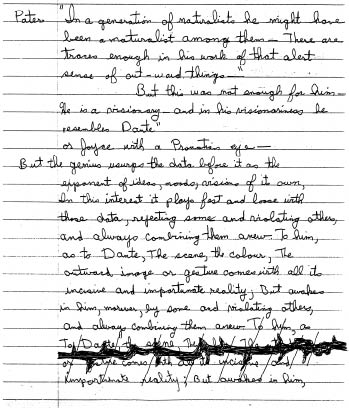 Pater "In a generation of naturalists he might have
been a naturalist among them — There are
traces enough in his work of that alert
sense of out-ward things —"
But this was not enough for him —
He is a visionary — and in his visionariness he
resembles Dante"
or Joyce with a Proustian eye —
But the genius usurps the data before it as the
exponent of ideas, moods, visions of its own,
In this interest it plays fast and loose with
those data, rejecting some and violating others,
and always combining them anew — To him,
as to Dante, The scene, the colour, The
outward image or gesture comes with all its
incisive and importunate reality; But awakes
in him, moreover, by some and violating others,
and always combining them anew To him, as
To Dante, the scene,
comes with all its incisive and
importunate reality; But awakes in him,